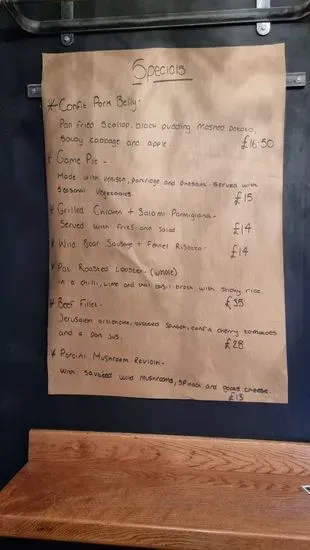 Specials
* Confit Pork Belly -
Pan fried scallop, black pudding mashed potato,
savoy cabbage and apple £16.50
* Game Pie -
Made with venison, partridge and pheasant. Served with
seasonal vegetables. £15
* Grilled Chicken + Salami Parmigiana -
Served with fries and salad £14
* Wild Boar Sausage + Fennel Risotto - £14
* Pot Roasted Lobster - (whole)
in a chilli, lime and thai basil broth with sticky rice.
£35
* Beef Fillet -
Jerusalem artichoke, sauteed spinach, confit cherry tomatoes
and a port jus. £28
* Porcini Mushroom Ravioli -
With sautéed wild mushrooms, spinach and goats cheese.
£13